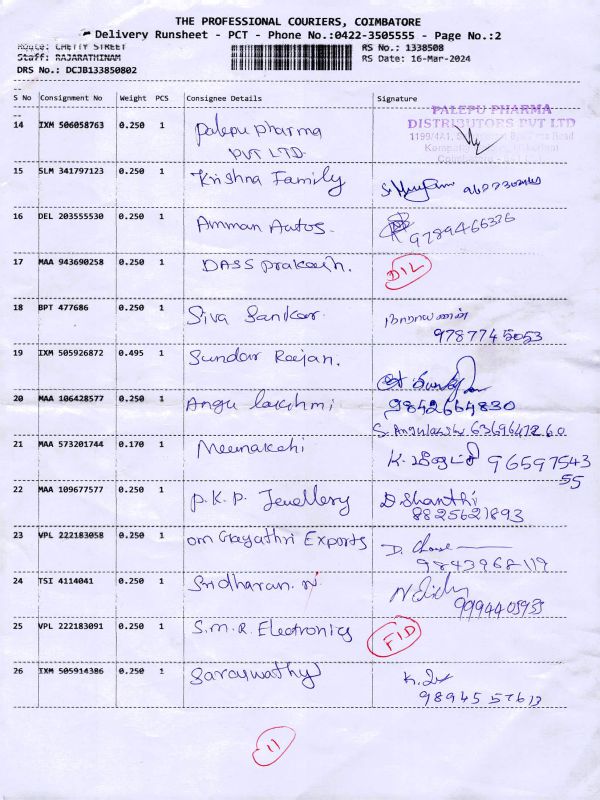 THE PROFESSIONAL COURIERS, COIMBATORE
Delivery Runsheet - PCT - Phone No.:0422-3505555 - Page No.:2
Route: CHETTY STREET RS No.: 1338508
Staff: RAJARATHINAM RS Date: 16-Mar-2024
DRS No.: DCJB133850802
S No Consignment No Weight PCS Consignee Details Signature
PALEPU PHARMA
DISTRIBUTORS PVT LTD
14 IXM 506058763 0.250 1 Palepu Pharma
PVT LTD.
15 SLM 341797123 0.250 1 Krishna Family
16 DEL 203555530 0.250 1 Amman Autos. 9789466326
17 MAA 943690258 0.250 1 DASS Prakash. DIL
18 BPT 477686 0.250 1 Siva Sankar. நாராயணன்
9787745053
19 IXM 505926872 0.495 1 Sundar Raajan.
20 MAA 106428577 0.250 1 Angu lakshmi 9842664830
21 MAA 573201744 0.170 1 Meenakchi K. மீனாட்சி 96597543
55
22 MAA 109677577 0.250 1 P.K.P. Jewellery D Shanthi
8825621893
23 VPL 222183058 0.250 1 om Gayathri Exports
9843968119
24 TSI 4114041 0.250 1 Sridharan. N
9994405935
25 VPL 222183091 0.250 1 S.M.R. Electronics FID
26 IXM 505914386 0.250 1 Saraswathy
98945 57613
11